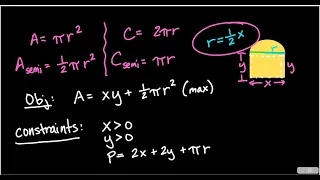 A = πr² | C = 2πr
A semi = ½πr² | C semi = πr
r = ½x
r
y y
x
Obj: A = xy + ½πr² (max)
constraints: x > 0
y > 0
P = 2x + 2y + πr